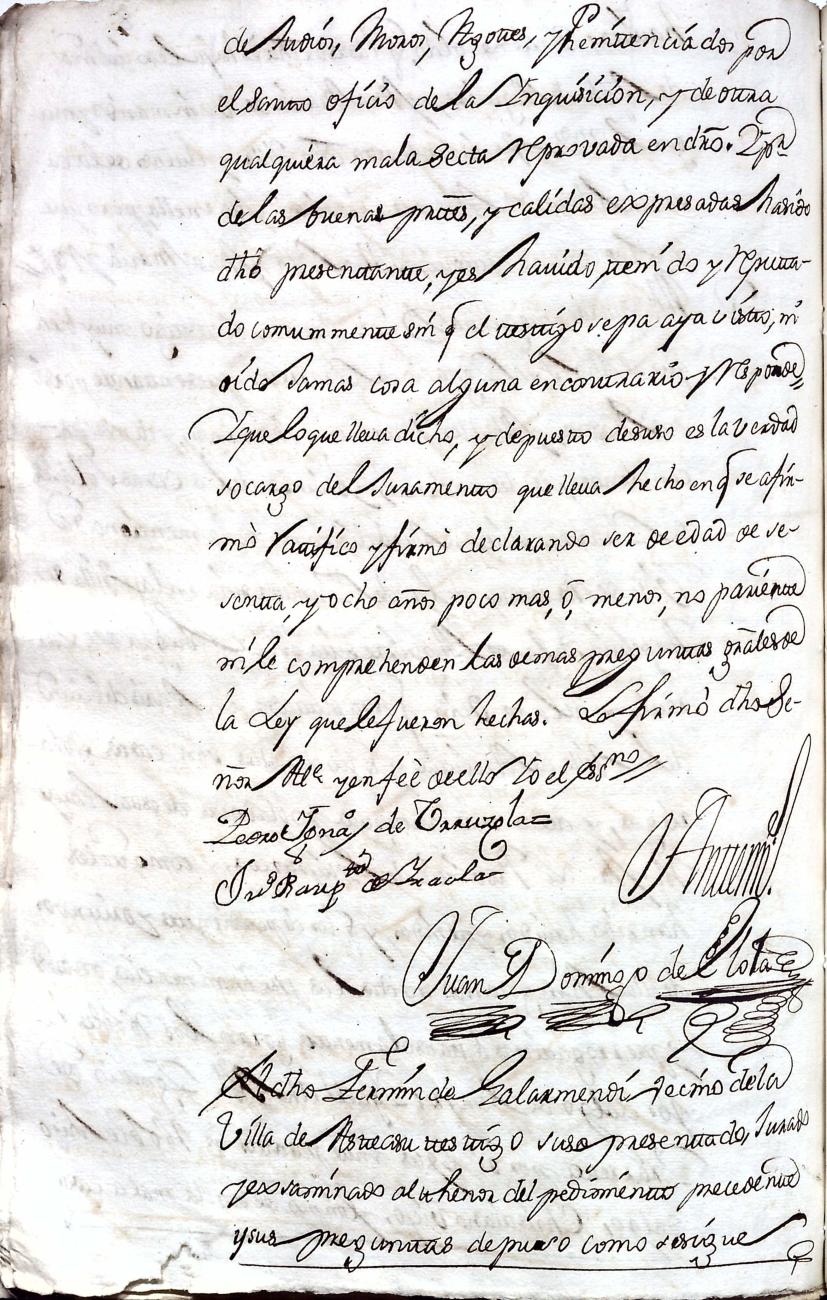 de Judios, Moros, Agottes, y Penittenciados por
el Santto oficio de la Inquisicion, y de ottra
qualquiera mala Secta reprovada en dro. Y por
de las buenas prttes, y calidas expresadas ha sido
dho presenttantte, y es havido, ttenido y reputta-
do comunmentte sin q el ttesttigo sepa aya vistto, ni
oido Jamas cosa alguna en conttrario y responde
Y que lo que lleva dicho, y depuestto desuso es la verdad
so cargo del Juramentto que lleva hecho en q se afir-
mò rattifico y firmò declarando ser de edad de se-
sentta, y ocho años poco mas, ò, menos, no parientte
ni le comprehenden las demas preguntas grales de
la Ley que le fueron hechas. Lo firmò dho Se-
ñor Alle y en feè de ello Yo el essno
Pedro Ignao de Urruzola
Antemi
Juan Domingo de
El dho Fermin de Galarmendi vecino de la
Villa de Asteasu ttesttigo suso presenttado, Jurado
y exsaminado al thenor del pedimentto precedentte
y sus preguntas depuso como se sigue